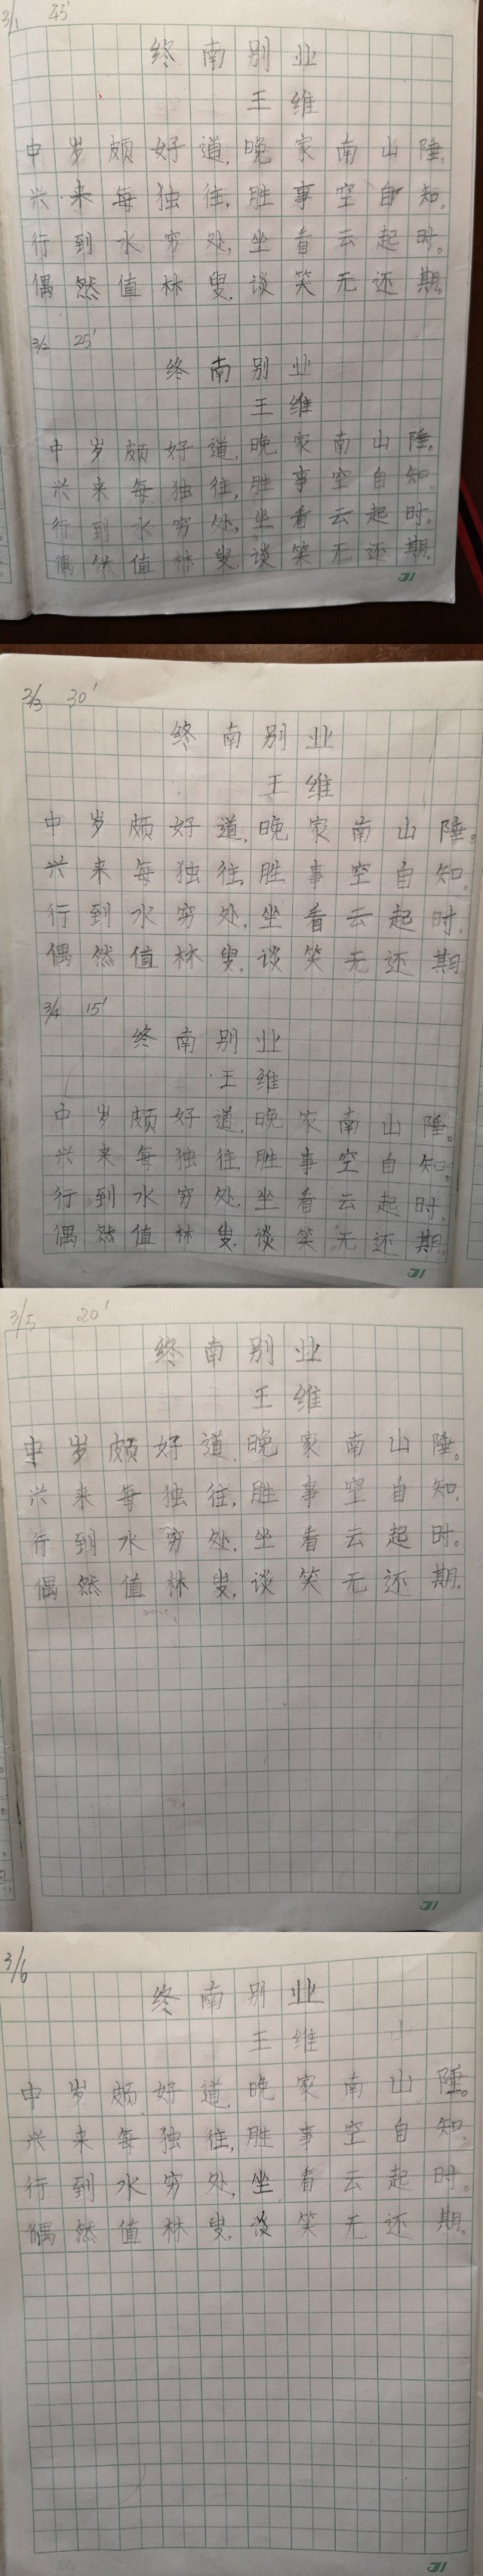 3/1 45'
终南别业
王维
中岁颇好道,晚家南山陲。
兴来每独往,胜事空自知。
行到水穷处,坐看云起时。
偶然值林叟,谈笑无还期。
3/2 25'
终南别业
王维
中岁颇好道,晚家南山陲。
兴来每独往,胜事空自知。
行到水穷处,坐看云起时。
偶然值林叟,谈笑无还期。
3/3 30'
终南别业
王维
中岁颇好道,晚家南山陲。
兴来每独往,胜事空自知。
行到水穷处,坐看云起时。
偶然值林叟,谈笑无还期
3/4 15'
终南别业
王维
中岁颇好道,晚家南山陲。
兴来每独往,胜事空自知。
行到水穷处,坐看云起时。
偶然值林叟,谈笑无还期
3/5 20'
终南别业
王维
中岁颇好道,晚家南山陲。
兴来每独往,胜事空自知。
行到水穷处,坐看云起时。
偶然值林叟,谈笑无还期。
3/6
终南别业
王维
中岁颇好道,晚家南山陲。
兴来每独往,胜事空自知。
行到水穷处,坐看云起时。
偶然值林叟,谈笑无还期。